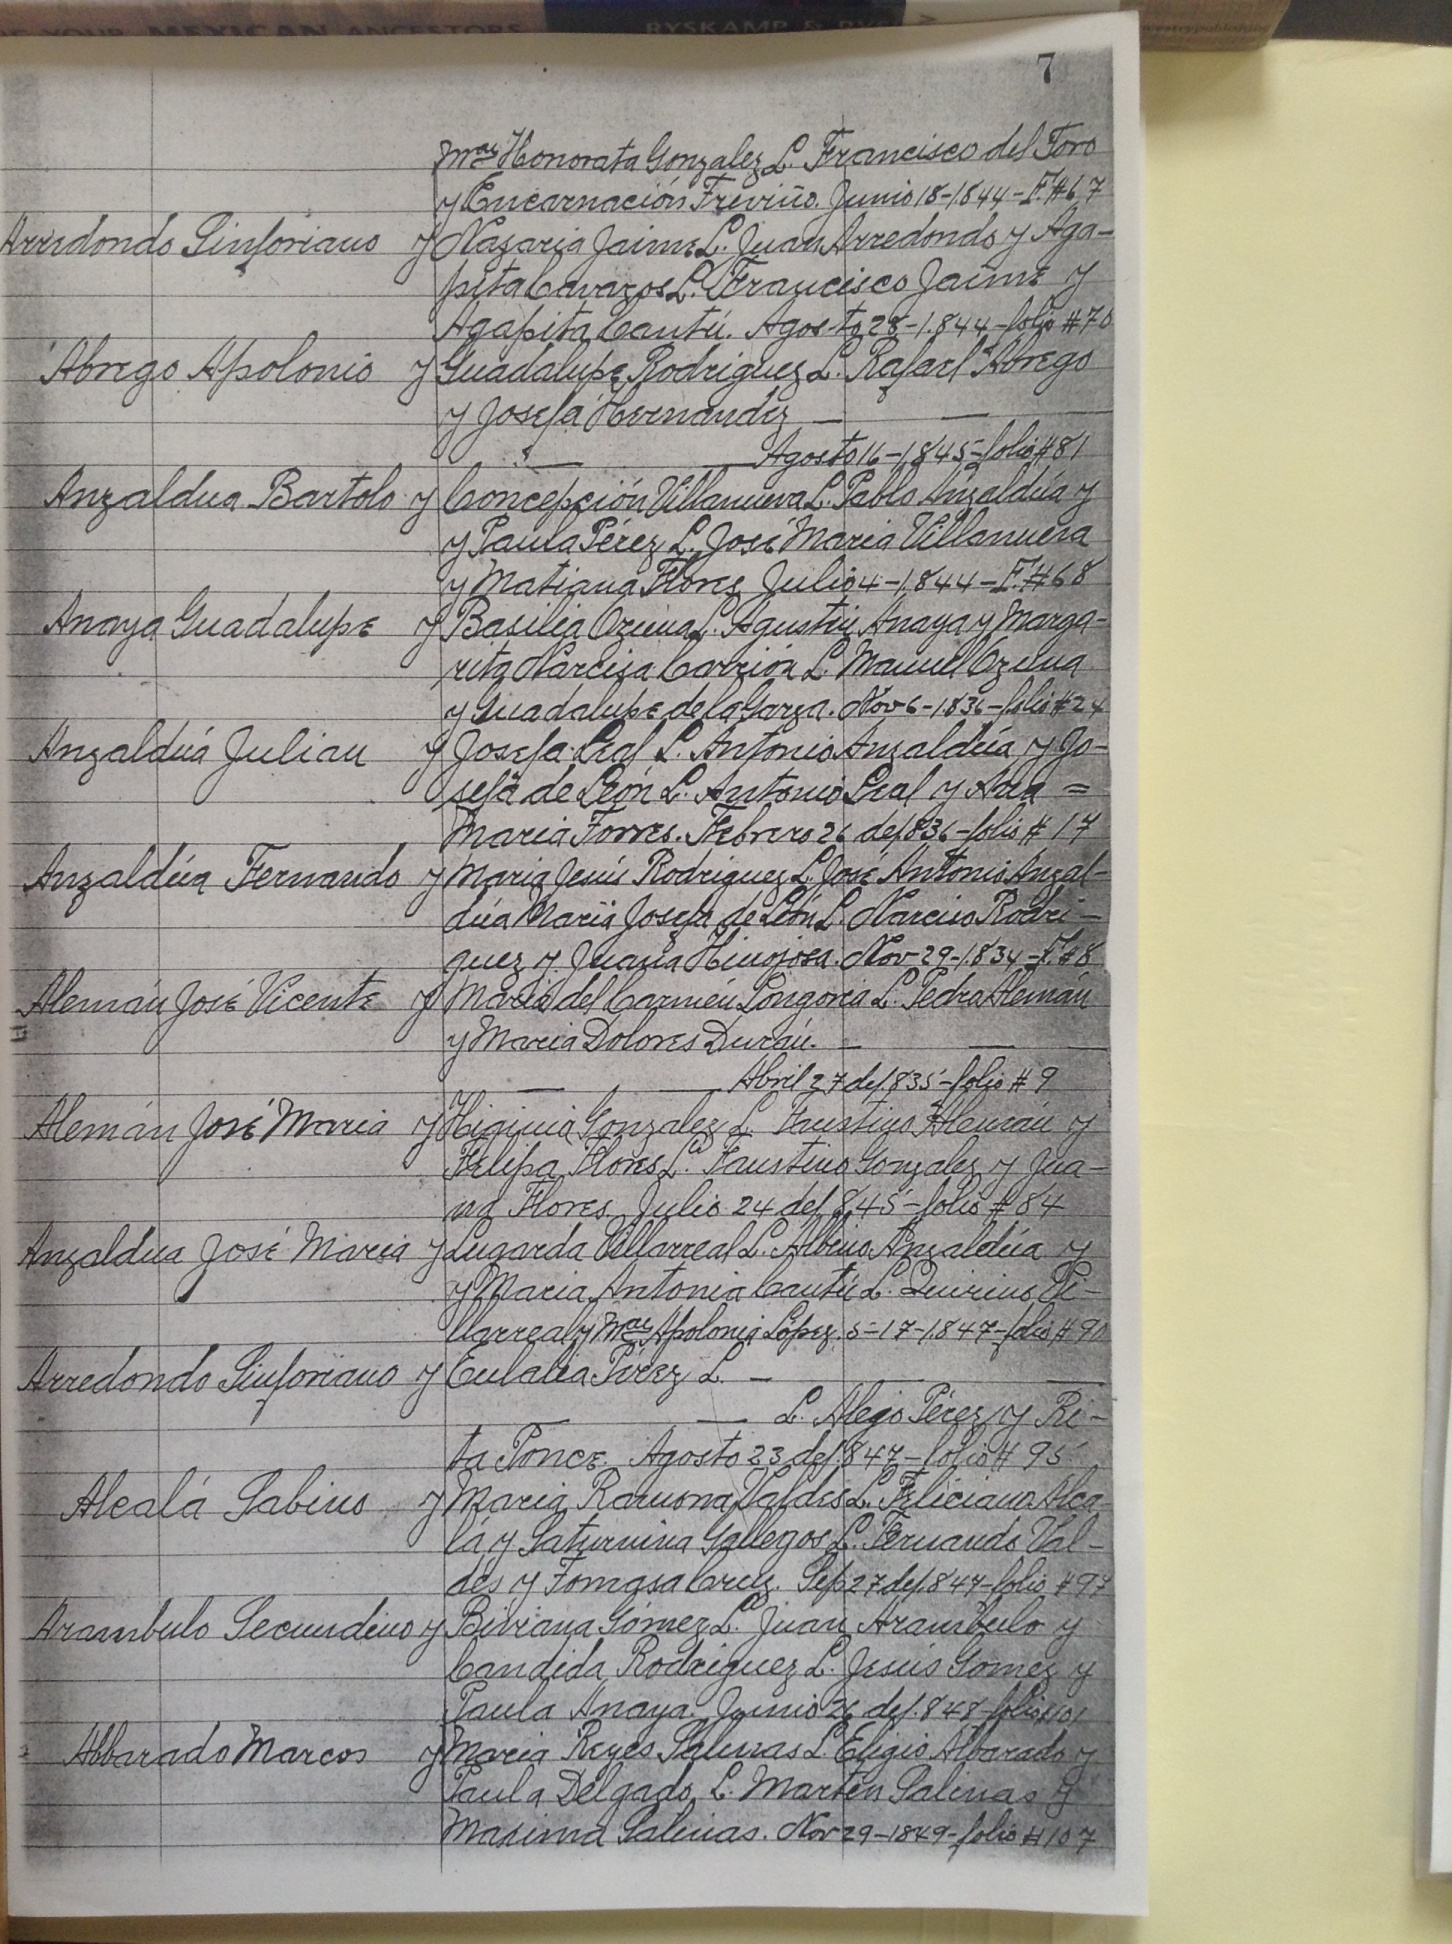 YOUR MEXICAN ANCESTORS RYSKAMP &
7
Mᵃᵃ Honorata Gonzalez L. Francisco del Toro
y Encarnación Treviño. Junio 18-1844-F.#67
Arredondo Sinforiano y Nazaria Jaime L. Juan Arredondo y Aga-
pita Cavazos L. Francisco Jaime y
Agapita Cantú. Agosto 28-1.844-folio #70
Abrego Apolonio y Guadalupe Rodriguez L. Rafael Abrego
y Josefa Hernandez —
— — Agosto 16-1,845-folio #81
Anzaldua Bartolo y Concepción Villanueva L. Pablo Anzaldúa y
y Paula Pérez L. José Maria Villanueva
y Matiana Flores Julio 4-1,844-F.#68
Anaya Guadalupe y Basilia Ozuna L. Agustin Anaya y Marga-
rita Narcisa Carrión L. Manuel Ozuna
y Guadalupe de la Garza. Nov 6-1.836-folio #24
Anzaldúa Julian y Josefa Leal L. Antonio Anzaldúa y Jo-
sefa de León L. Antonio Leal y Ana =
Maria Torres. Febrero 26 de 1.836-folio # 17
Anzaldúa Fernando y Maria Jesús Rodriguez L. José Antonio Anzal-
dúa Maria Josefa de León L. Narciso Rodri-
guez y Juana Hinojosa. Nov-29-1.834-F.#8
Alemán José Vicente y Maria del Carmen Longoria L. Pedro Alemán
y Maria Dolores Durán. — —
— — Abril 27 de 1.835-folio # 9
Alemán José Maria y Higinia Gonzalez L. Faustino Alemán y
Felipa Flores L. Faustino Gonzalez y Jua-
na Flores. Julio 24 de 1,845-folio # 84
Anzaldua José Maria y Lugarda Villarreal L. Albino Anzaldúa y
y Maria Antonia Cantú L. Quirino Vi-
llarreal y Mᵃᵃ Apolonia López. 5-17-1.847-folio #90
Arredondo Sinforiano y Eulalia Pérez L. — —
— — L. Alejo Pérez y Ri-
ta Ponce. Agosto 23 de 1.847-folio # 95
Alcalá Sabino y Maria Ramona Valdes L. Feliciano Alca-
lá y Saturnina Gallegos L. Fernando Val-
dés y Tomasa Cruz. Sep 27 de 1.847-folio #97
Arambulo Secundino y Biviana Gómez L. Juan Arambulo y
Candida Rodriguez L. Jesús Gomez y
Paula Anaya. Junio 26 de 1.848-folio #101
Albarado Marcos y Maria Reyes Salinas L. Eligio Albarado y
Paula Delgado L. Martin Salinas y
Masima Salinas. Nov 29-1849-folio #107